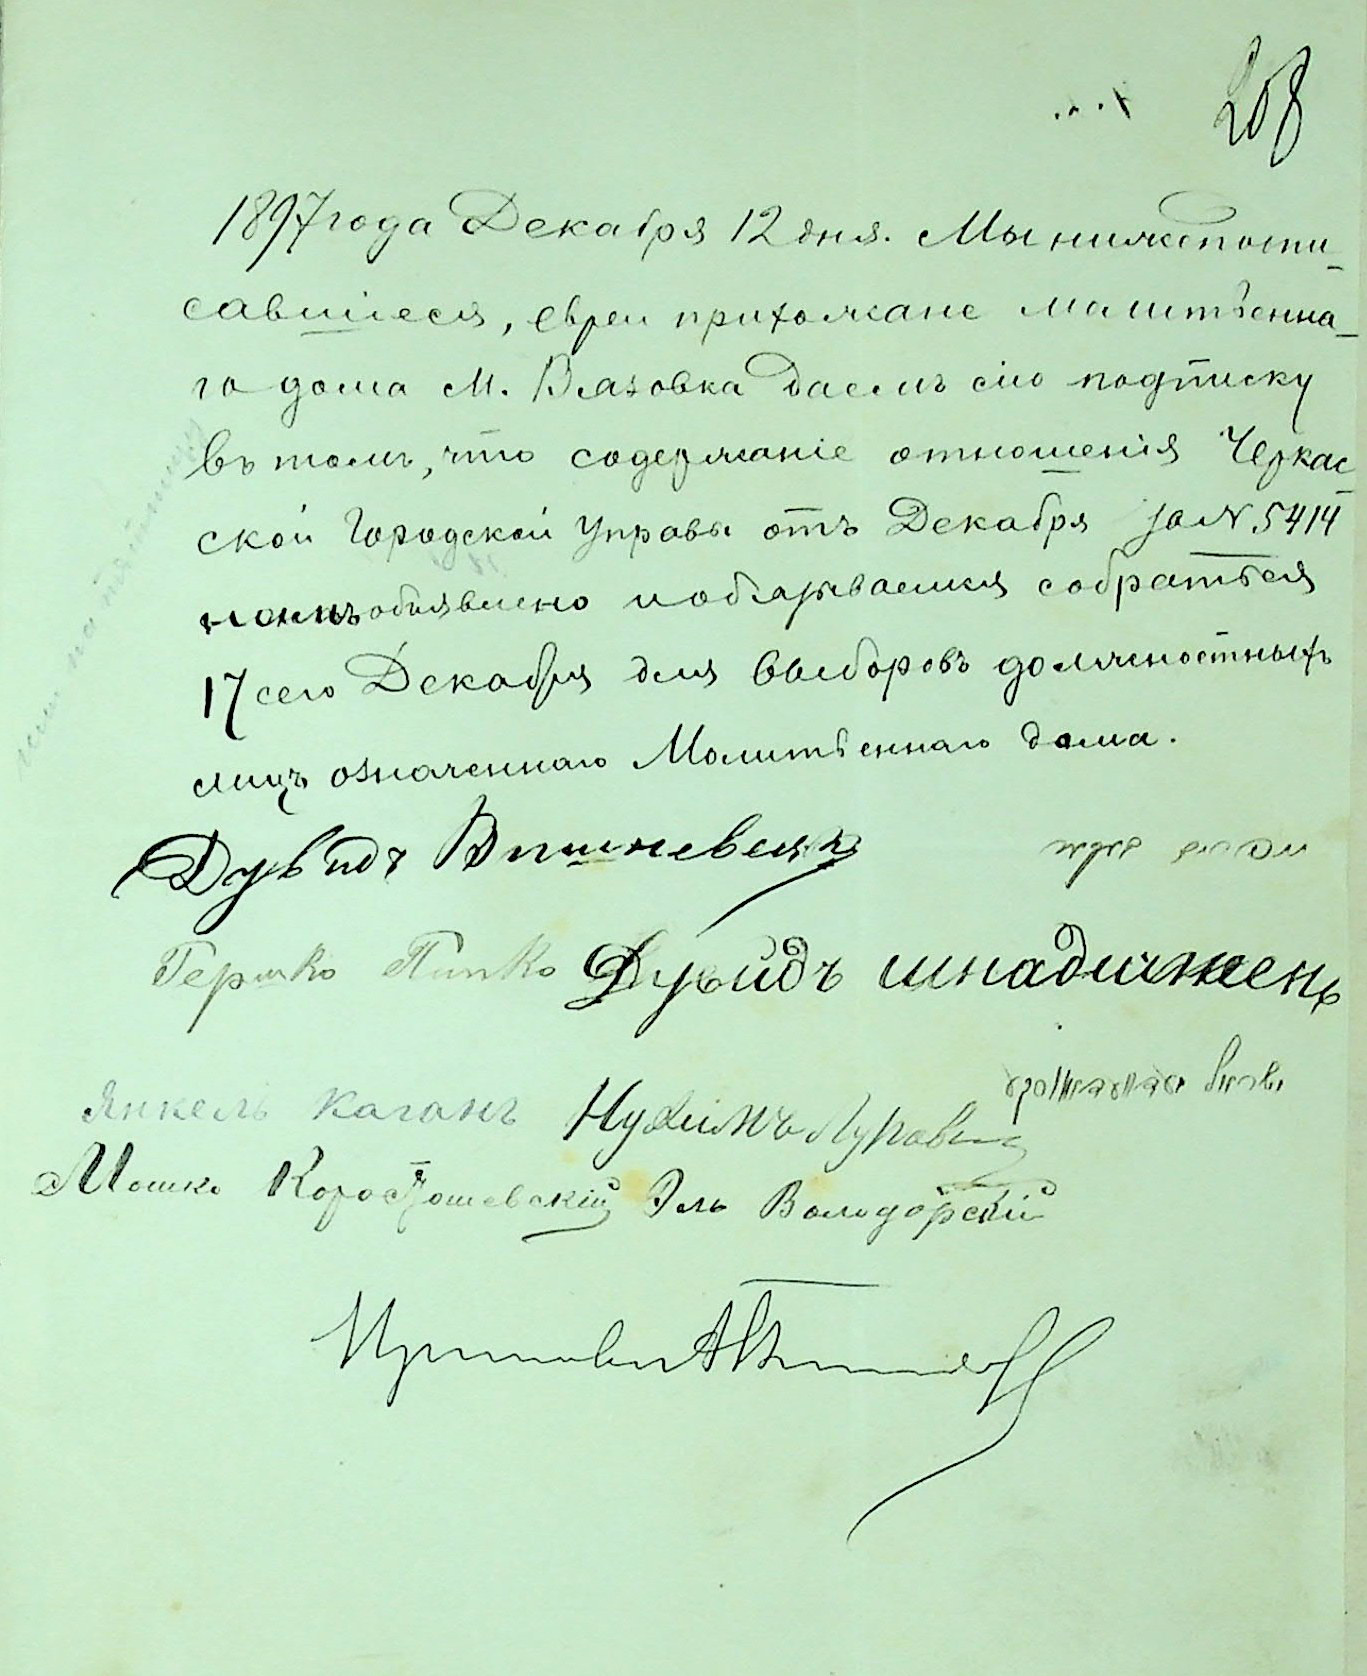 208
1897 года Декабря 12 дня. Мы нижеподпи-
савшіеся, евреи прихожане молитвенна-
го дома М. Вязовка даемъ сію подписку
въ томъ, что содержаніе отношенія Черкас-
ской Городской Управы отъ Декабря за N. 5414
намъ объявлено и обязываемся собраться
17 сего Декабря для выборовъ должностныхъ
лицъ означеннаго Молитвеннаго дома.
Дувидъ Вишневецкъ
Гершко Пипко Дувидъ
Янкель Каганъ Нухимъ
Мошко Коростошевскій Эль Володарскій